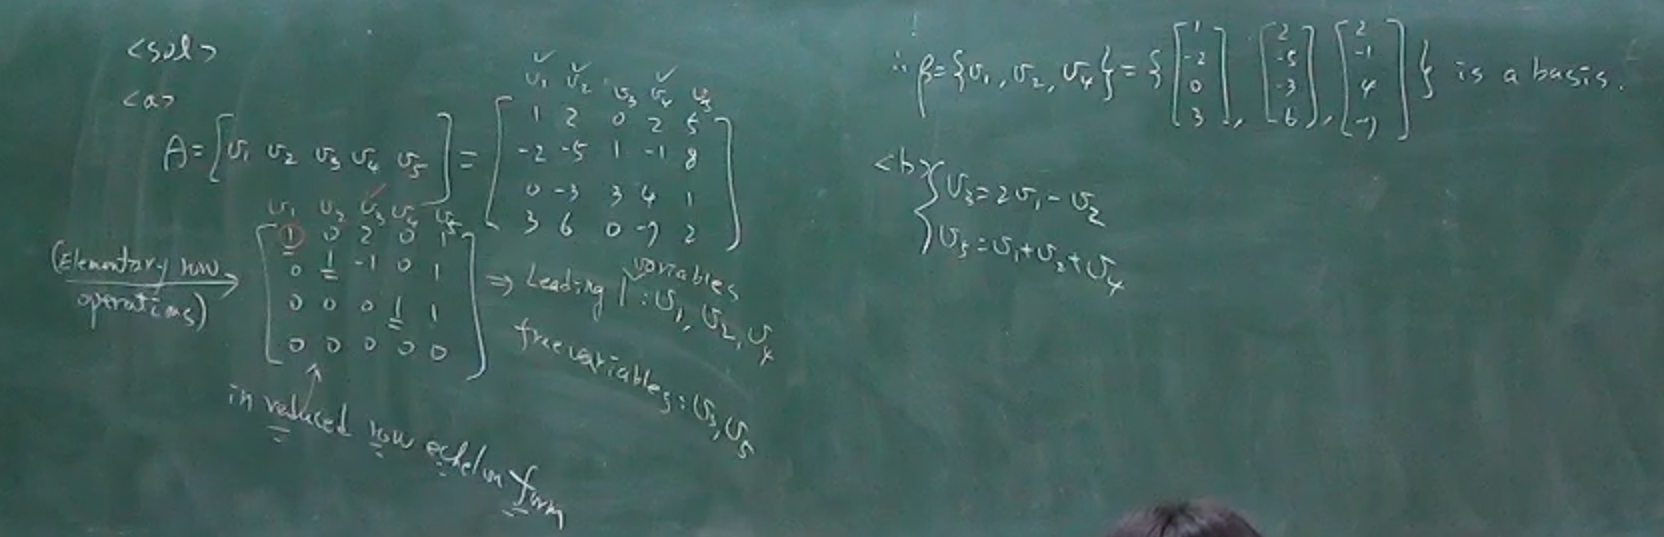 <sol>
<a>
A = [v₁ v₂ v₃ v₄ v₅] =
v₁ v₂ v₃ v₄ v₅
1 2 0 2 5
-2 -5 1 -1 8
0 -3 3 4 1
3 6 0 -7 2
(Elementary row operations) →
v₁ v₂ v₃ v₄ v₅
1 0 2 0 1
0 1 -1 0 1
0 0 0 1 1
0 0 0 0 0
⇒ Leading 1 variables : v₁, v₂, v₄
free variables : v₃, v₅
in reduced row echelon form
∴ β = {v₁, v₂, v₄} = { [1 -2 0 3], [2 -5 -3 6], [2 -1 4 -7] } is a basis.
<b> { v₃ = 2v₁ - v₂
v₅ = v₁ + v₂ + v₄